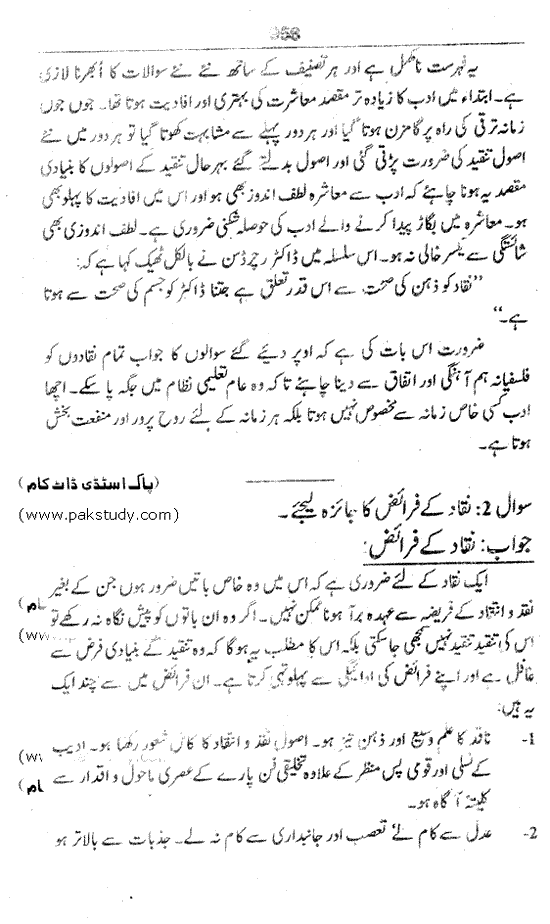 958
یہ فہرست نامکمل ہے اور ہر تصنیف کے ساتھ نئے نئے سوالات کا اُبھرنا لازی
ہے۔ ابتداء میں ادب کا زیادہ تر مقصد معاشرت کی بہتری اور افادیت ہوتا تھا۔ جوں جوں
زمانہ ترقی کی راہ پر گامزن ہوتا گیا اور ہر دور پہلے سے مشابہت کھوتا گیا تو ہر دور میں نئے
اصول تنقید کی ضرورت پڑتی گئی اور اصول بدلتے گئے بہرحال تنقید کے اصولوں کا بنیادی
مقصد یہ ہونا چاہئے کہ ادب سے معاشرہ لطف اندوز بھی ہو اور اس میں افادیت کا پہلو بھی
ہو۔ معاشرہ میں بگاڑ پیدا کرنے والے ادب کی حوصلہ شکنی ضروری ہے۔ لطف اندوزی بھی
شائستگی سے یکسر خالی نہ ہو۔ اس سلسلہ میں ڈاکٹر رچرڈسن نے بالکل ٹھیک کہا ہے کہ:
”نقاد کو ذہن کی صحت سے اس قدر تعلق ہے جتنا ڈاکٹر کو جسم کی صحت سے ہوتا
ہے۔“
ضرورت اس بات کی ہے کہ اوپر دیئے گئے سوالوں کا جواب تمام نقادوں کو
فلسفیانہ ہم آہنگی اور اتفاق سے دینا چاہئے تاکہ وہ عام تعلیمی نظام میں جگہ پا سکے۔ اچھا
ادب کسی خاص زمانہ سے مخصوص نہیں ہوتا بلکہ ہر زمانہ کے لئے روح پرور اور منفعت بخش
ہوتا ہے۔
(پاک اسٹڈی ڈاٹ کام)
سوال 2: نقاد کے فرائض کا جائزہ لیجئے۔
(www.pakstudy.com)
جواب: نقاد کے فرائض:
ایک نقاد کے لئے ضروری ہے کہ اس میں وہ خاص باتیں ضرور ہوں جن کے بغیر
نقد و انتقاد کے فریضہ سے عہدہ برآ ہونا ممکن نہیں۔ اگر وہ ان باتوں کو پیش نگاہ نہ رکھے تو
اس کی تنقید تنقید نہیں سمجھی جا سکتی بلکہ اس کا مطلب یہ ہو گا کہ وہ تنقید کے بنیادی فرض سے
غافل ہے اور اپنے فرائض کی ادائیگی سے پہلو تہی کرتا ہے۔ ان فرائض میں سے چند ایک
یہ ہیں:
1- ناقد کا علم وسیع اور ذہن تیز ہو۔ اصول نقد و انتقاد کا کامل شعور رکھتا ہو۔ ادیب
کے نسلی اور قومی پس منظر کے علاوہ تخلیقی فن پارے کے عصری ماحول و اقدار سے
کلیتۂ آگاہ ہو۔
2- عدل سے کام لے تعصب اور جانبداری سے کام نہ لے۔ جذبات سے بالاتر ہو